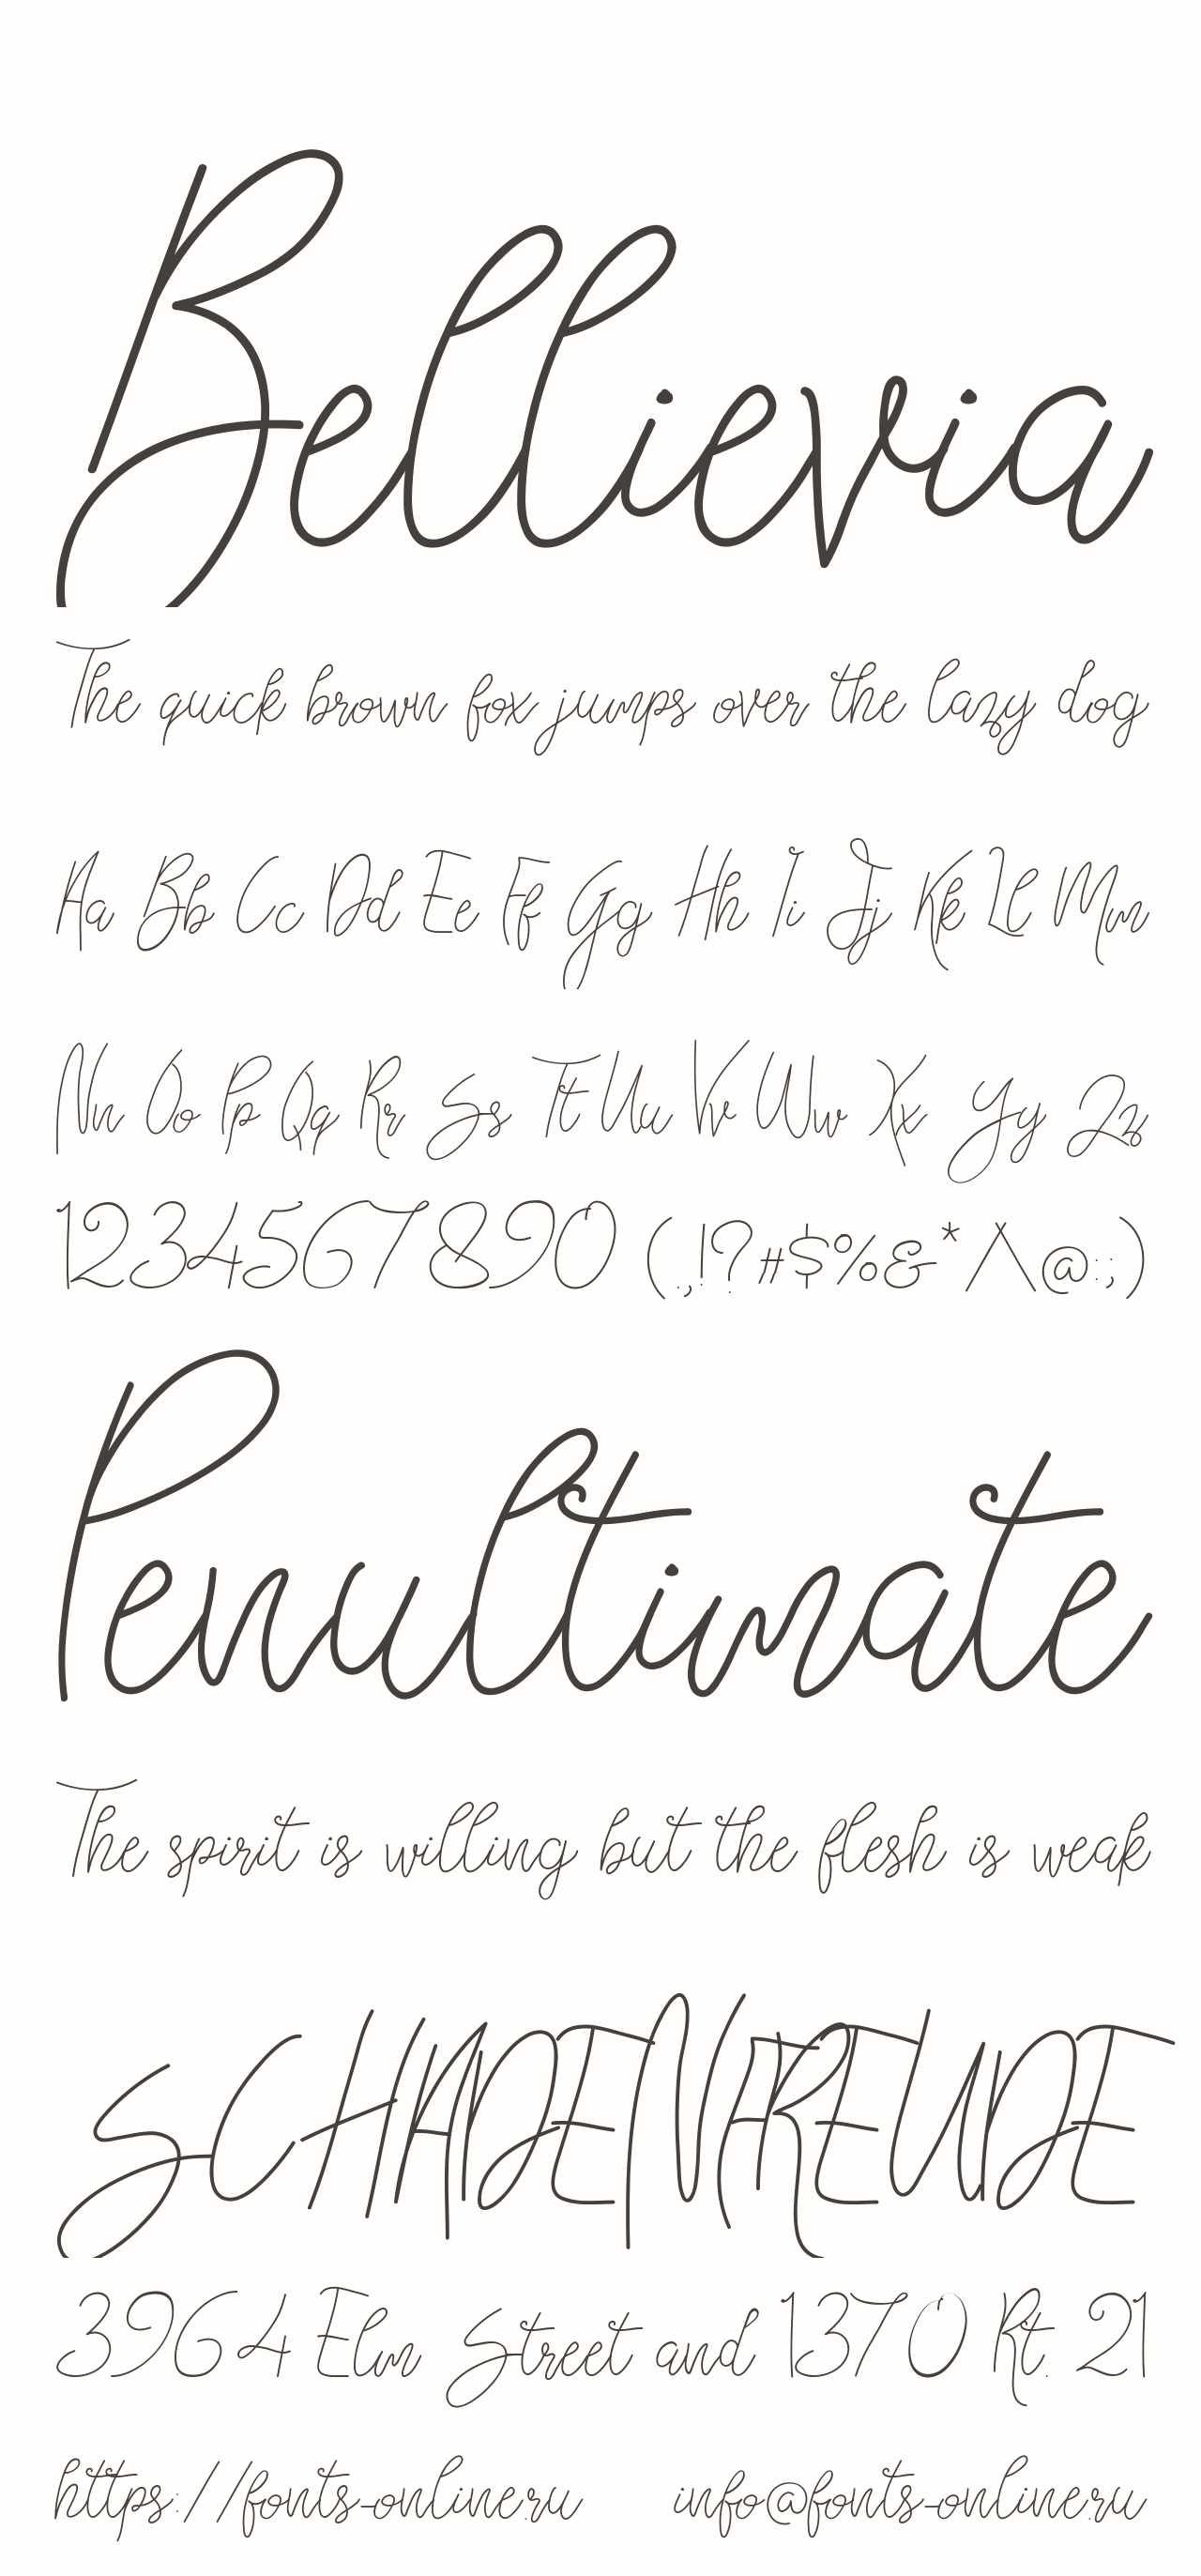 Bellievia
The quick brown fox jumps over the lazy dog
Aa Bb Cc Dd Ee Ff Gg Hh Ii Jj Kk Ll Mm
Nn Oo Pp Qq Rr Ss Tt Uu Vv Ww Xx Yy Zz
1234567890 (.,!?#$%&* /\@:;)
Penultimate
The spirit is willing but the flesh is weak
SCHADENFREUDE
3964 Elm Street and 1370 Rt. 21
https://fonts-online.ru info@fonts-online.ru